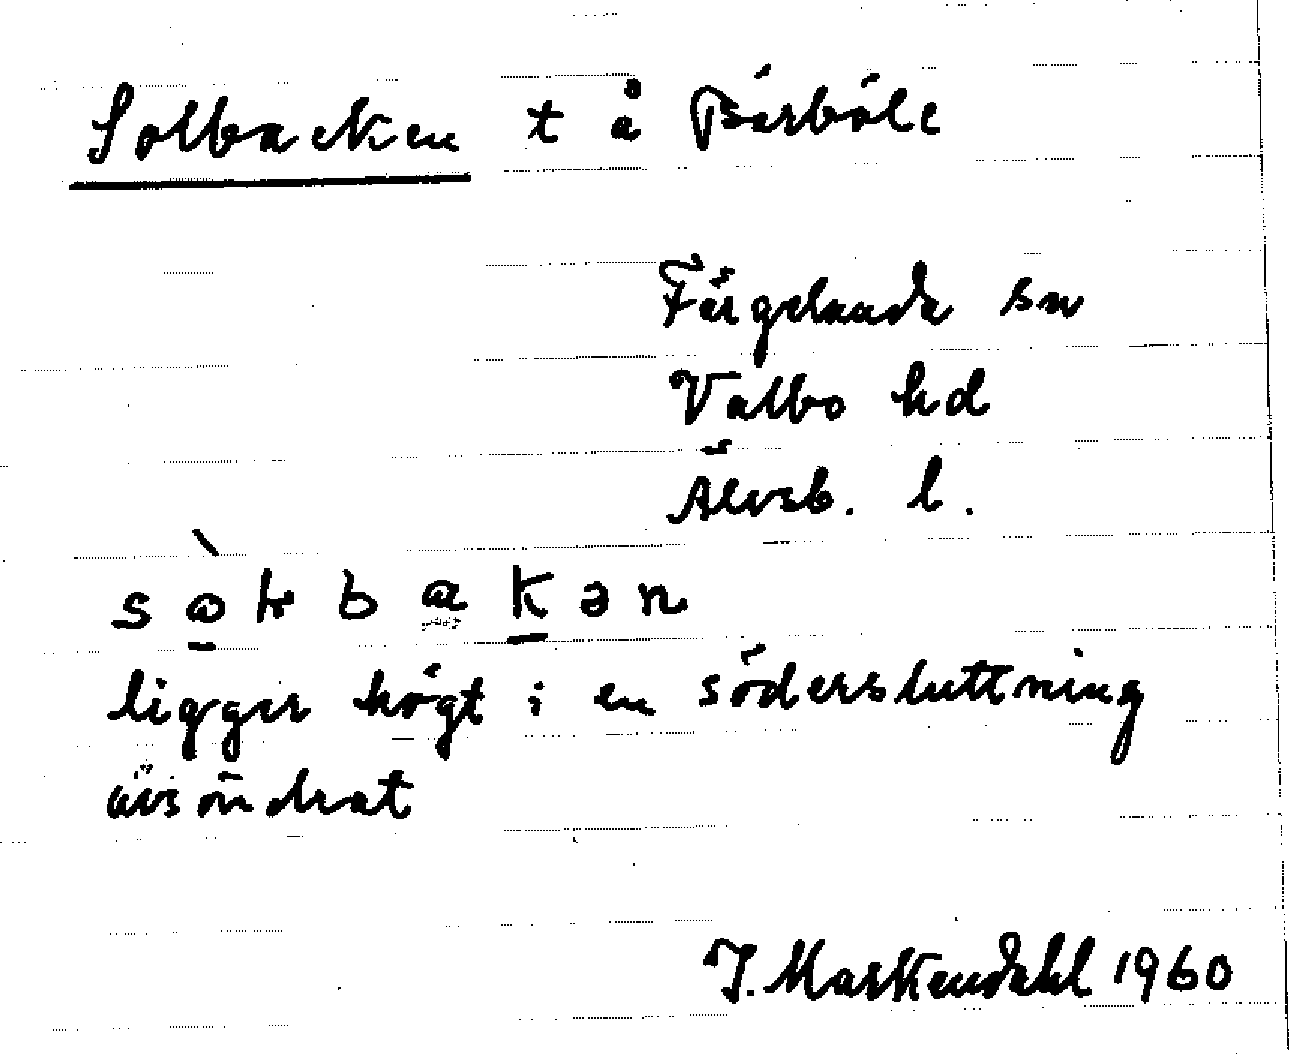 Solbacken t å Bärböle
Färgelanda sn
Valbo hd
Älvsb. l.
ligger högt i en södersluttning
avsöndrat
J. Markendahl 1960